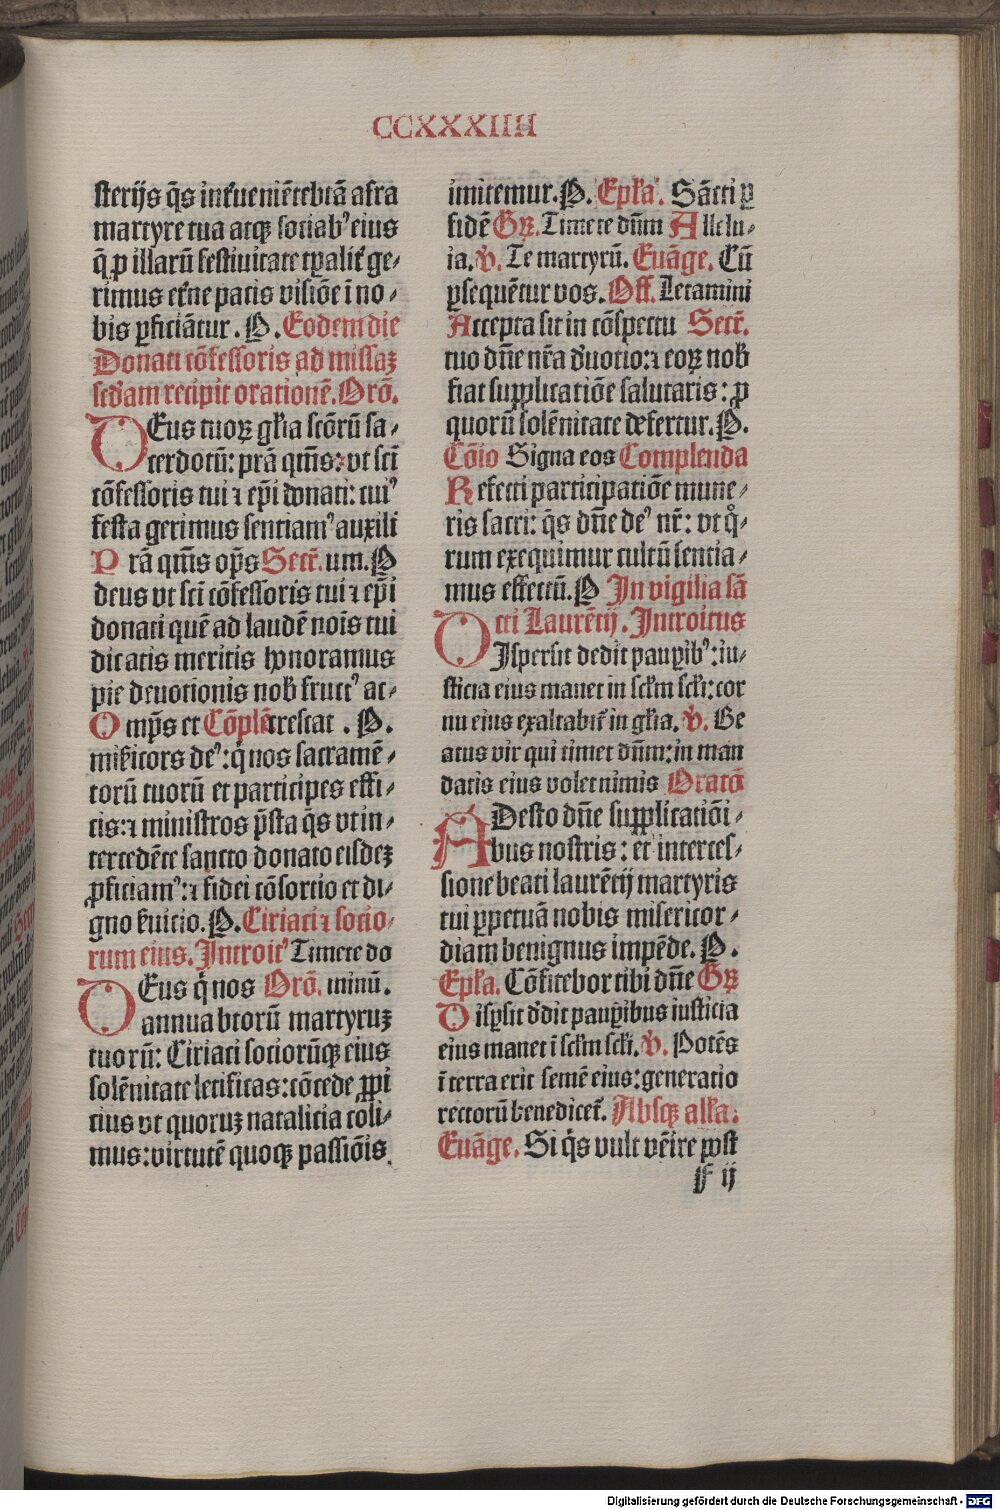 CCXXXIIII
sterijs q̄s int̄ueniētebt̄ā afra
martyre tua atqꝫ sociabꝰ eius
q̄ ꝓ illarū festiuitate tꝑalit̄ ge-
rimus et̄ne pacis visiōe ī no-
bis ꝑficiātur. P. Eodem die
Donati cōfessoris ad missaꝫ
scd̄am recipit orationē. Orō.
DEus tuoꝝ gl̄ia scōrū sa-
cerdotū: prā qm̄s: vt scī
cōfessoris tui ⁊ ep̄i donati: cuiꝰ
festa gerimus sentiamꝰ auxili
Prā qm̄s op̄s Secr̄. um. P
deus vt scī cōfessoris tui ⁊ ep̄i
donati quē ad laudē nois tui
dicatis meritis honoramus
pie deuotionis nob̄ fructꝰ ac-
Omp̄s et Cōplē crescat. P.
mis̄icors deꝰ: q̇ nos sacramē-
torū tuorū et participes effi-
cis: ⁊ ministros p̄sta q̄s vt in-
tercedēte sancto donato eisdeꝫ
ꝓficiamꝰ: ⁊ fidei cōsortio et di-
gno s̄uicio. P. Ciriaci ⁊ socio-
rum eius. Introitꝰ Timete do
DEus q̇ nos Orō. minū.
annua btorū martyruꝫ
tuorū: Ciriaci sociorūqꝫ eius
solēnitate letificas: cōcede ꝓpi
cius vt quoruꝫ natalicia coli-
mus: virtutē quoqꝫ passiōis
imitemur. P. Epl̄a. Sācti ꝑ
fidē Gꝝ. Timete dn̄m Allelu-
ia. v̄. Te martyrū. Euāge. Cū
ꝑsequētur vos. Off. Letamini
Accepta sit in cōspectu Secr̄.
tuo dn̄e nr̄a d̄uotio: ⁊ eoꝝ nob̄
fiat supplicatiōe salutaris: ꝓ
quorū solēnitate defertur. P.
Cōio Signa eos Complenda
Refecti participatiōe mune-
ris sacri: q̄s dn̄e deꝰ nr̄: vt qͦ-
rum exequimur cultū sentia-
mus effectū. P In vigilia sā
cti Laurētij. Introitus
DIspersit dedit pauꝑibꝰ: iu-
sticia eius manet in scl̄m scl̄i: cor
nu eius exaltabit̄ in gl̄ia. v̄. Be
atus vir qui timet dn̄m: in man
datis eius volet nimis Oratō
ADesto dn̄e supplicatiōi-
bus nostris: et interces-
sione beati laurētij martyris
tui ꝑpetuā nobis misericor-
diam benignus impēde. P.
Epl̄a. Cōfitebor tibi dn̄e Gꝝ
Disꝑsit d̄dit pauꝑibus iusticia
eius manet ī scl̄m scl̄i. v̄. Potēs
ī terra erit semē eius: generatio
rectorū benedicet̄. Absqꝫ all̄a.
Euāge. Si q̇s vult vēire post
F ij
Digitalisierung gefördert durch die Deutsche Forschungsgemeinschaft - DFG